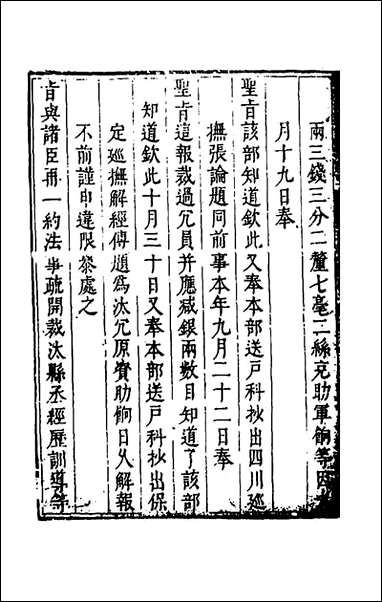 兩三錢三分二釐七毫二絲充助軍餉等因
月十九日奉
聖旨該部知道欽此又奉本部送戶科抄出四川廵
撫張論題同前事本年九月二十二日奉
聖旨這報裁過冗員并應减銀兩數目知道了該部
知道欽此十月三十日又奉本部送戶科抄出保
定廵撫解經傳題爲汰冗原資助餉日久解報
不前謹申違限叅處之
旨與諸臣再一約法事疏開裁汰縣丞經歷訓導等